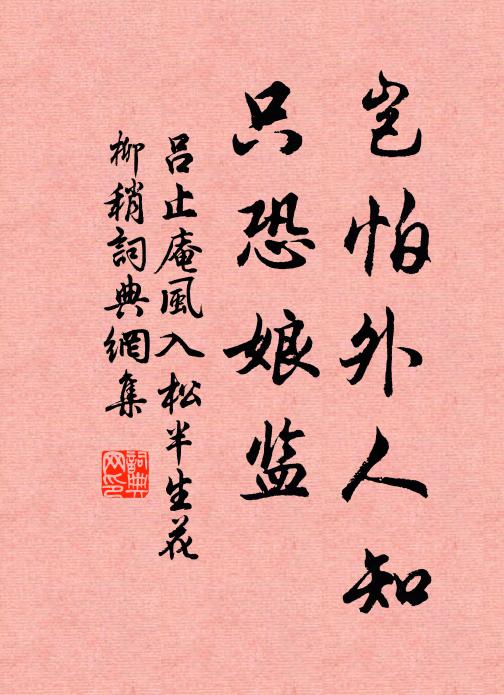 岂怕外人知
只恐娘监
吕止庵風入松半生花
柳稍詞典網集
詞典网印